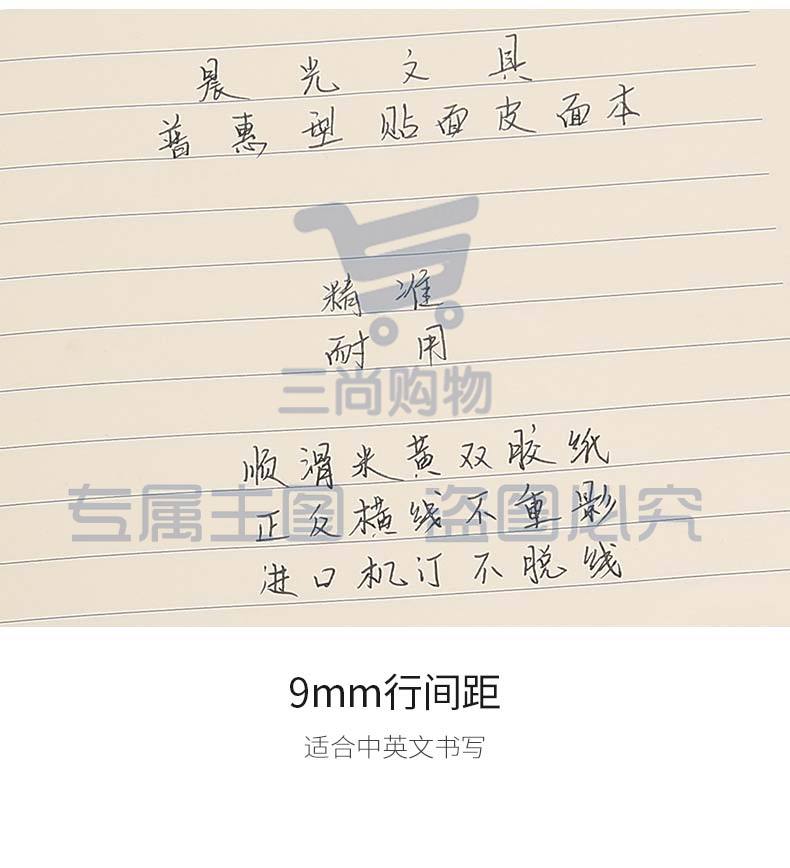 晨光文具
普惠型贴面皮面本
精准
耐用
三尚购物
顺滑米黄双胶纸
专属主图 盗图必究
正反横线不重影
进口机订不脱线
9mm行间距
适合中英文书写